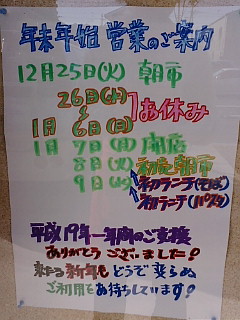 年末年始 営業のご案内
12月25日(火) 朝市
26日(水)
〜 お休み
1月6日(日)
1月7日(月) 開店
8日(火) 初売朝市
9日(水) 初ランチ(そば)
初ランチ(パスタ)
平成19年一年間のご支援
ありがとうございました!
来たる新年もどうぞ変らぬ
ご利用をお待ちしています!